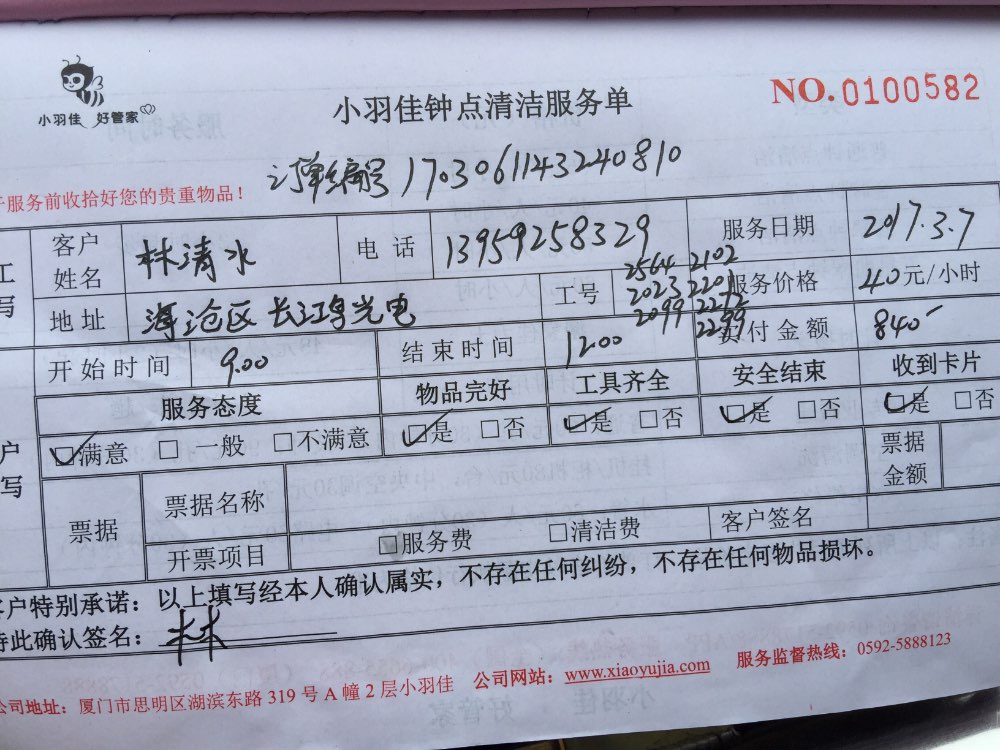 小羽佳 好管家
小羽佳钟点清洁服务单
NO.0100582
订单编号 1703061143240810
于服务前收拾好您的贵重物品！
客户姓名 林清水 电话 13959258329 服务日期 2017.3.7
地址 海沧区长江鸿光电 工号 2564 2102 2023 2201 2099 2272 2299 服务价格 40元/小时
开始时间 9.00 结束时间 12.00 实付金额 840
服务态度 物品完好 工具齐全 安全结束 收到卡片
☑满意 □一般 □不满意 ☑是 □否 ☑是 □否 ☑是 □否 ☑是 □否
票据 票据名称 票据金额
开票项目 □服务费 □清洁费 客户签名
客户特别承诺：以上填写经本人确认属实，不存在任何纠纷，不存在任何物品损坏。
特此确认签名：林
公司地址：厦门市思明区湖滨东路 319 号 A 幢 2 层小羽佳 公司网站：www.xiaoyujia.com 服务监督热线：0592-5888123